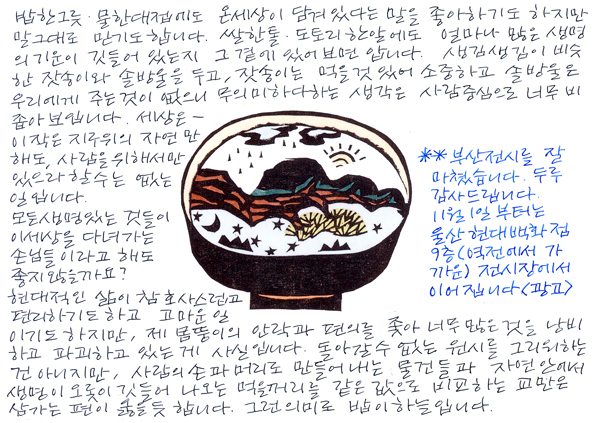 밥 한그릇·물 한대접에도 온세상이 담겨있다는 말을 좋아하기도 하지만
말그대로 믿기도 합니다. 쌀 한톨·도토리 한알에도 얼마나 많은 생명
의 기운이 깃들어 있는지 그 곁에 있어보면 압니다. 생김생김이 비슷
한 잣송이와 솔방울을 두고, 잣송이는 먹을것 있어 소중하고 솔방울은
우리에게 주는것이 없으니 무의미하다하는 생각은 사람중심으로 너무 비
좁아 보입니다. 세상은—
이 작은 지구위의 자연만
해도, 사람을 위해서만
있으라 할 수는 없는
일입니다.
모든 생명있는 것들이
이세상을 다녀가는
손님들이라고 해도
좋지 않을까요?
현대적인 삶이 참 호사스런고
편리하기도 하고 고마운 일
이기도 하지만, 제 몸뚱이의 안락과 편의를 좇아 너무 많은 것을 낭비
하고 파괴하고 있는게 사실입니다. 돌아갈 수 없는 원시를 그리워하는
건 아니지만, 사람의 손과 머리로 만들어내는 물건들과 자연안에서
생명이 오롯이 깃들어 나오는 먹을꺼리를 같은 값으로 비교하는 교만은
삼가는 편이 옳을듯 합니다. 그런 의미로 밥이 하늘입니다.
**부산전시를 잘
마쳤습니다. 두루
감사드립니다.
11월 1일 부터는
울산 현대백화점
9층(역전에서 가
까운) 전시장에서
이어집니다<광고>